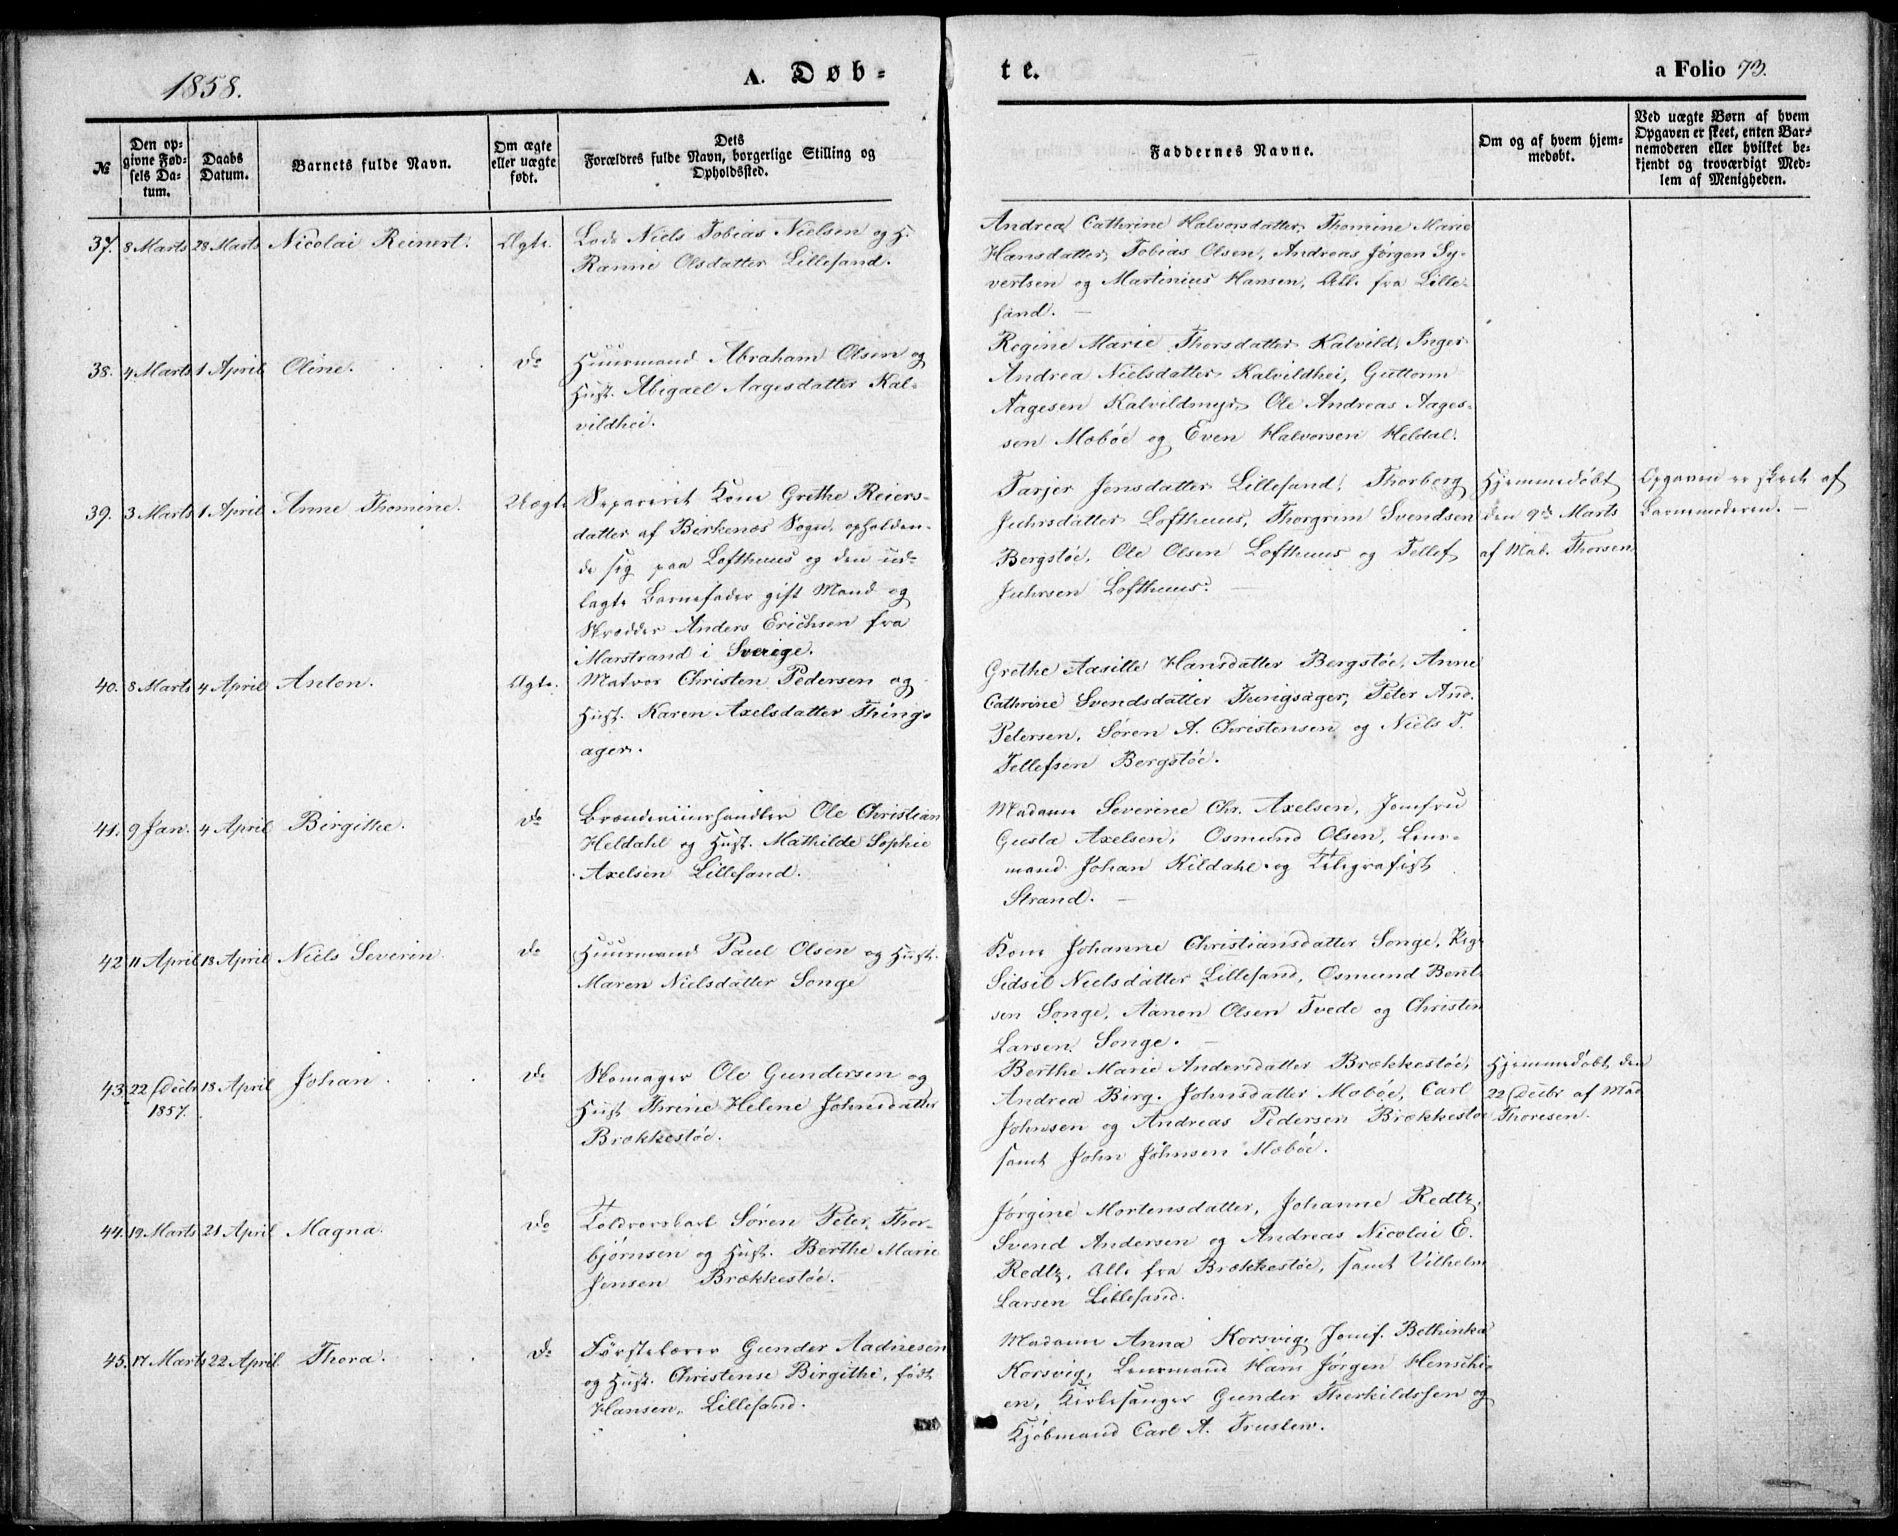 1858.
A. Døb-
te.
a Folio 73.
№
Den op-
givne Fød-
sels Da-
tum.
Daabs
Datum.
Barnets fulde Navn.
Om ægte
eller uægte
født.
Dets
Forældres fulde Navn, borgerlige Stilling og
Opholdssted.
Faddernes Navne.
Om og af hvem hjem-
medøbt.
Ved uægte Børn af hvem
Opgaven er skeet, enten Bar-
nemoderen eller hvilket be-
kjendt og troværdigt Med-
lem af Menigheden.
37. 8 Marts 28 Marts Nicolai Reinert. Ægte.
Lods Niels Tobias Nielsen og H.
Ranne Olsdatter Lillesand.
Andrea Cathrine Halvorsdatter, Thomine Marie
Hansdatter, Tobias Olsen, Andreas Jørgen Sy-
vertsen og Martinius Hansen, Alle fra Lille-
sand.
38. 4 Marts 1 April Oline. do
Huurmand Abraham Olsen og
Hust. Abigael Aagesdatter Kal-
vildhei.
Regine Marie Thorsdatter Kalvild, Inger
Andrea Nielsdatter Kalvildhei, Guttorm
Aagesen Kalvildmyr, Ole Andreas Aages-
sen Moböe og Even Halvorsen Heldal.
39. 3 Marts 1 April Anne Thomine. Uægte
Separeret Kone Grethe Reiers-
datter af Birkenæs Sogn, opholden-
de sig paa Lofthuus og den ud-
lagte Barnefader gift Mand og
Skrædder Anders Erichsen fra
Marstrand i Sverige.
Tarjer Jensdatter Lillesand, Thorberg
Juhrsdatter Lofthuus, Thorgrim Svendsen
Bergstöe, Ole Olsen Lofthuus og Tellef
Juhrsen Lofthuus.
Hjemmedøbt
den 9de Marts
af Mad. Thorsen
Opgaven er skeet af
Barnemoderen.
40. 8 Marts 4 April Anton. Ægte.
Matros Christen Pedersen og
Hust. Karen Axelsdatter Things-
ager.
Grethe Aasille Hansdatter Bergstöe, Anne
Cathrine Svendsdatter Thingsager, Peter And.
Petersen, Søren A. Christensen og Niels T.
Tellefsen Bergstöe.
41. 9 Jan. 4 April Birgithe. do
Brændeviinshandler Ole Christian
Heldahl og Hust. Mathilde Sophie
Axelsen Lillesand.
Madame Severine Chr. Axelsen, Jomfru
Gusta Axelsen, Osmund Olsen, Leur-
mand Johan Kildahl og Telegrafist
Strand.
42. 11 April 18 April Niels Severin. do
Huurmand Paul Olsen og Hust.
Maren Nielsdatter Songe
Kone Johanne Christiansdatter Songe, Pige
Sidsil Nielsdatter Lillesand, Osmund Bent-
sen Songe, Aanon Olsen Tvede og Christen
Larsen Songe.
43. 22 Decbr 18 April Johan. do
1857.
Skomager Ole Gundersen og
Hust Thrine Helene Johnsdatter
Brækkestöe.
Berthe Marie Andersdatter Brækkestöe,
Andrea Birg. Johnsdatter Moböe, Carl
Johnsen og Andreas Pedersen Brækkestöe
samt John Johnsen Moböe.
Hjemmedöbt den
22 Decbr af Mad
Thoresen.
44. 19 Marts 21 April Magna. do
Toldroerskarl Søren Peter Thor-
bjørnsen og Hust. Berthe Marie
Jensen Brækkestöe.
Jørgine Mortensdatter, Johanne Redtz,
Svend Andersen og Andreas Nicolai E.
Redtz, Alle fra Brækkestöe, samt Vilhelm
Larsen Lillesand.
45. 17 Marts 22 April. Thora. do
Førstelærer Gunder Aadnesen
og Hust. Christense Birgithe, født
Hansen, Lillesand.
Madame Anna Korsvig, Jomf. Bethinka
Korsvig, Leurmand Hans Jørgen Henschi-
en, Kirkesanger Gunder Therkildssen og
Kjøbmand Carl A.